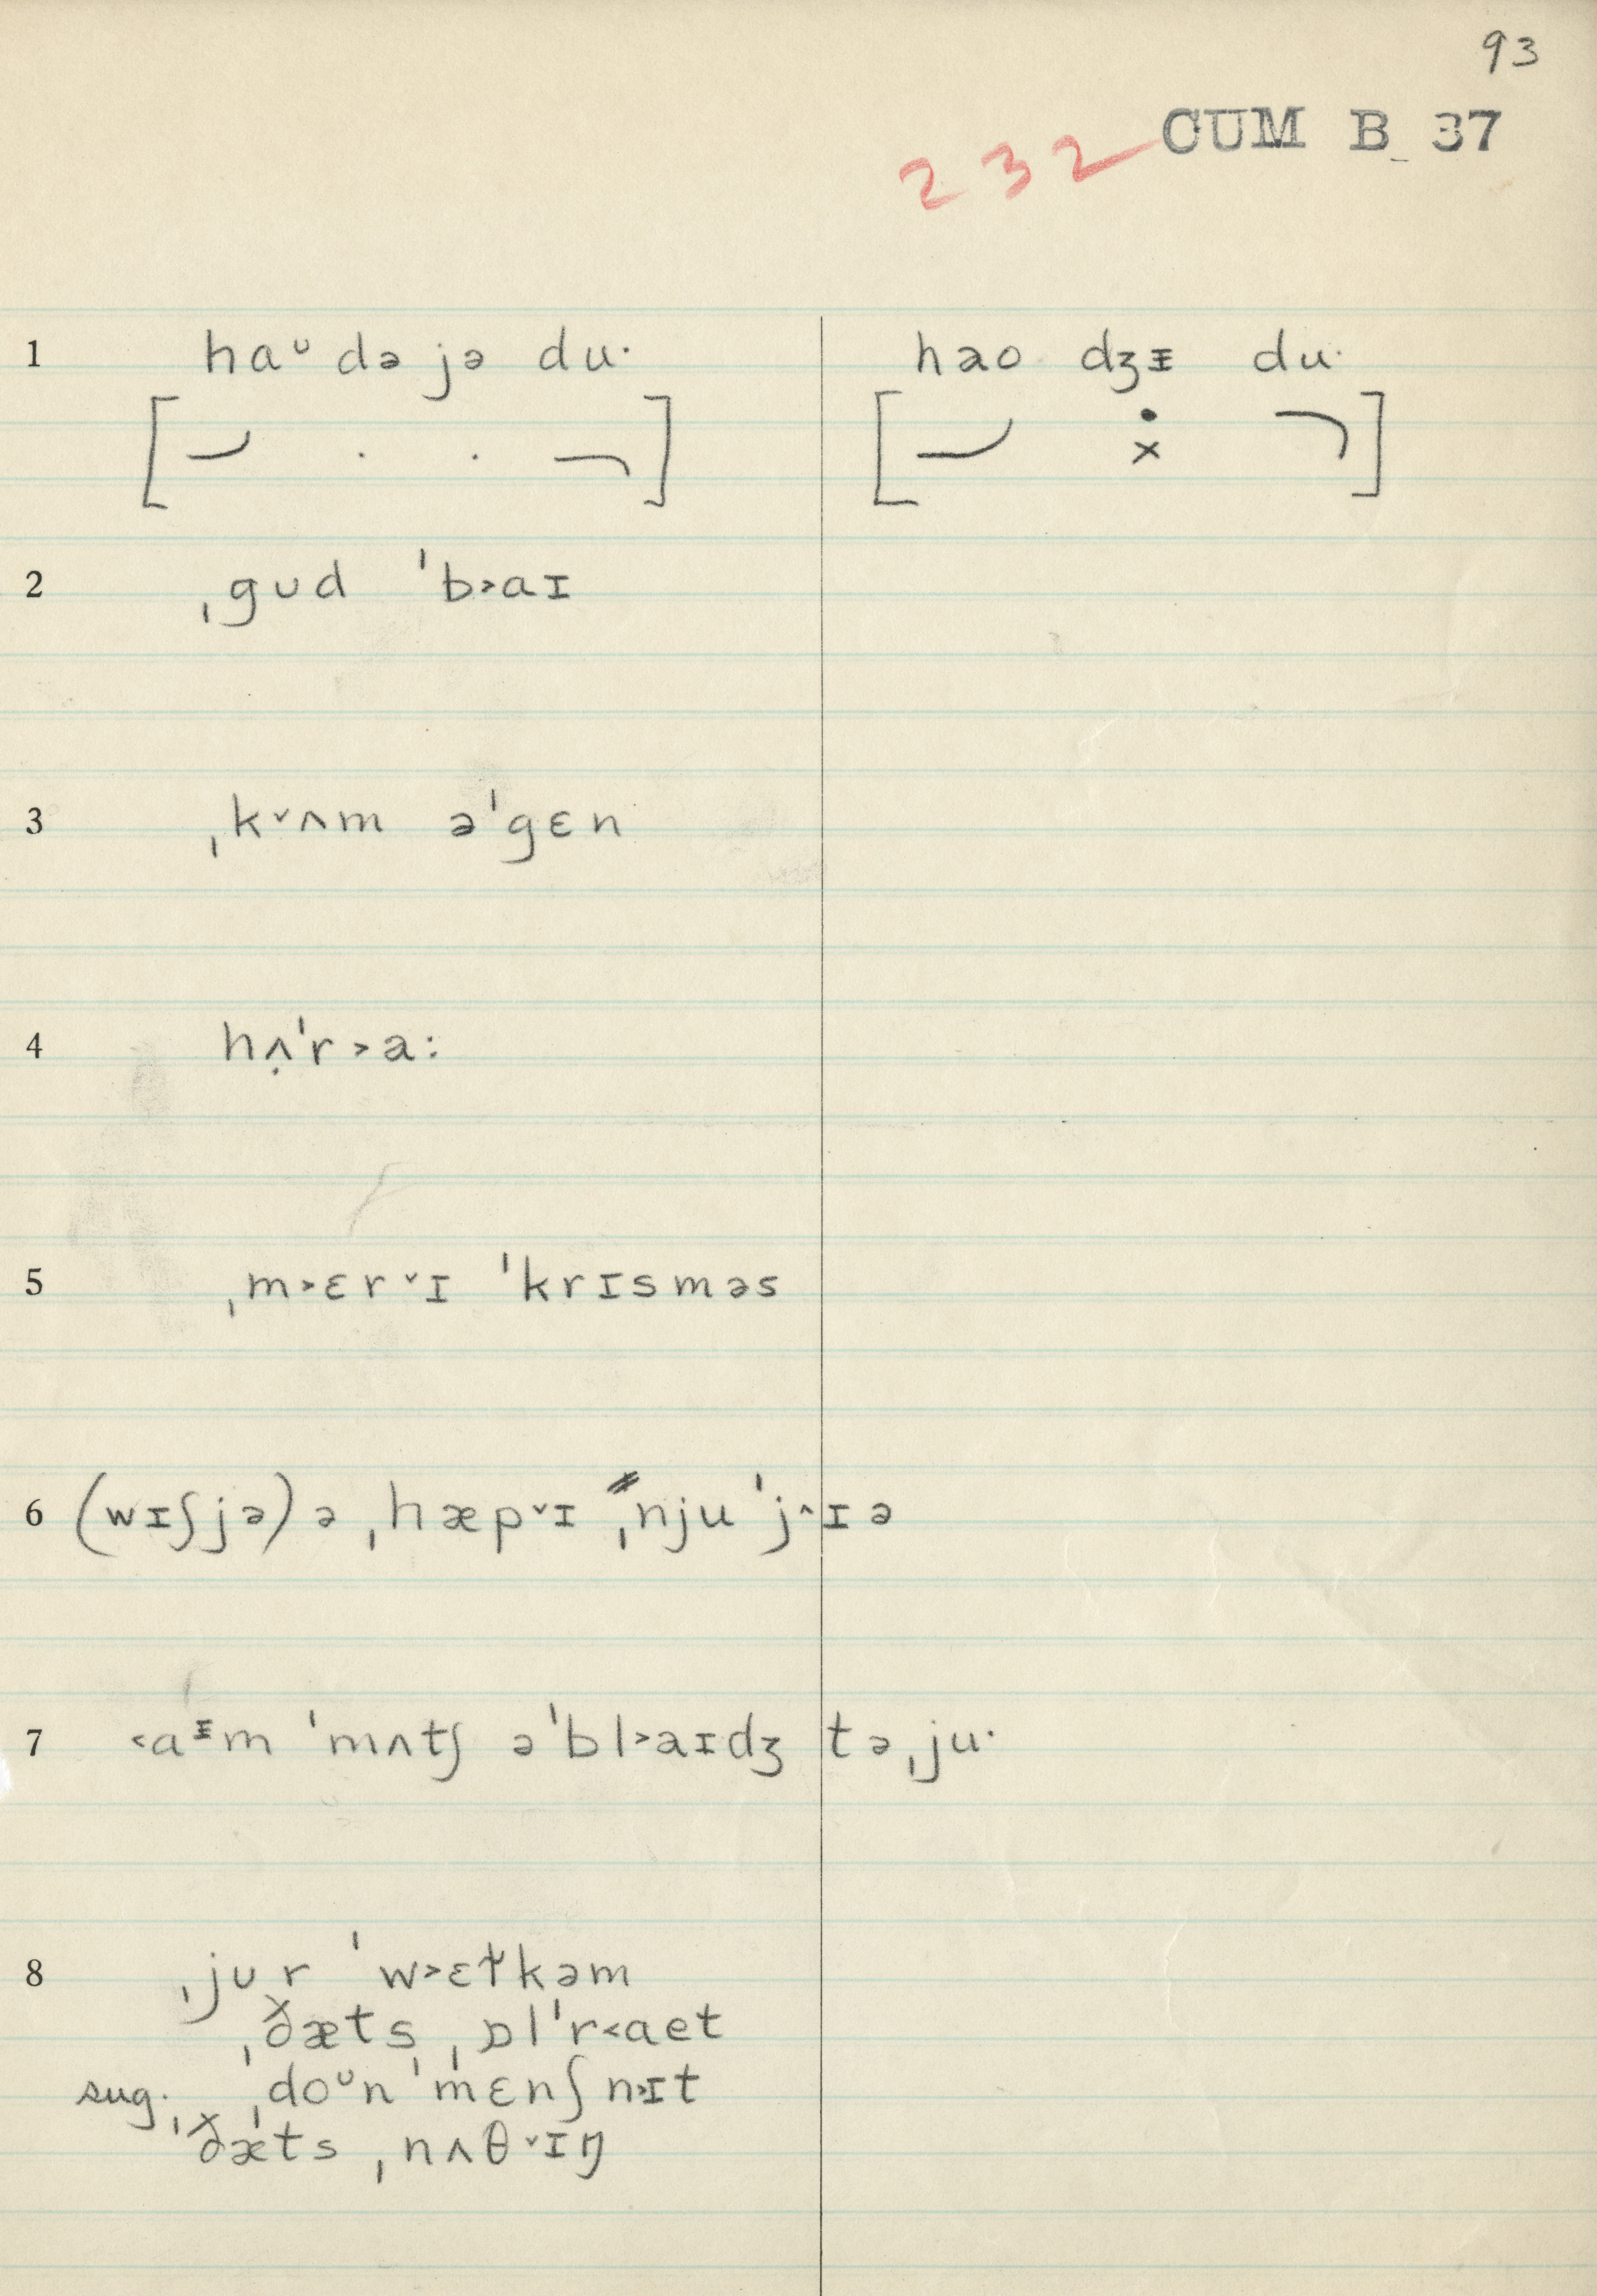 93
CUM B 37
232
1 haᶷ də jə du· həo dʒᵻ du·
[ ] [ ]
2 ˌgʊd ˈb˃aɪ
3 ˌk˅ʌm əˈgɛn
4 hʌ̣ˈr˃a:
5 ˌm˃ɛr˅ɪ ˈkrɪsməs
6 (wɪʃjə) ə ˌhæp˅ɪ ˌnju ˈj˄ɪə
7 ˂aᵻm ˈmʌtʃ əˈbl˃aɪdʒ təˌju·
8 ˌjʊr ˈw˃ɛɫkəm
ˌðæts ˌɒlˈr˂aet
sug. ˌdoᶷn ˈmɛnʃn˃ɪt
ˌðæts ˌnʌθ˅ɪŋ